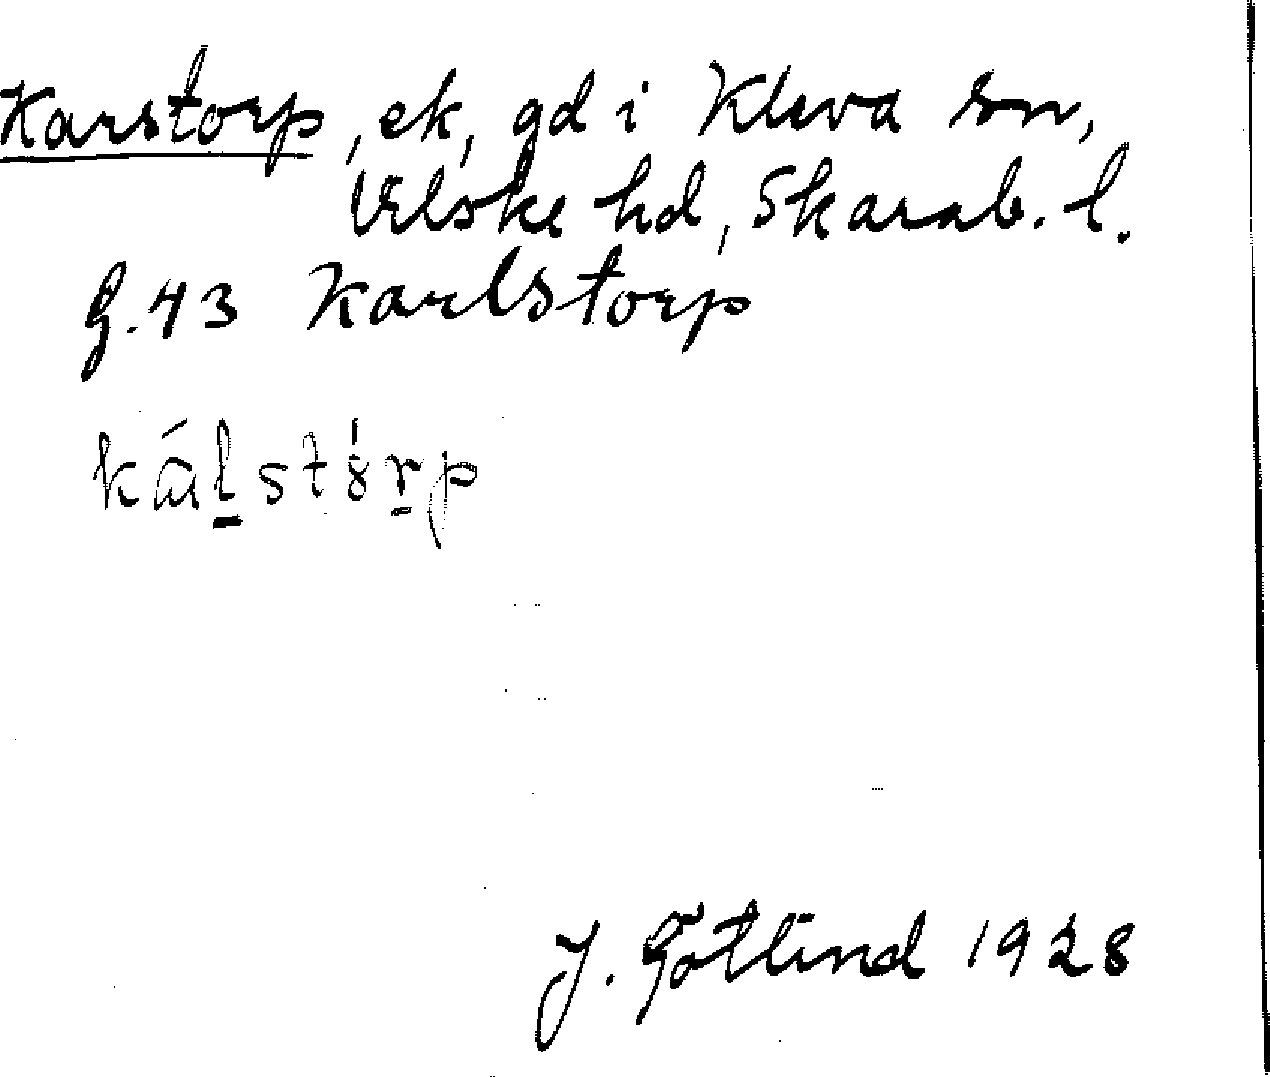 Karstorp, ek, gd i Kleva sn,
Vilske hd, Skarab. l.
G. 43 Karlstorp
J. Götlind 1928